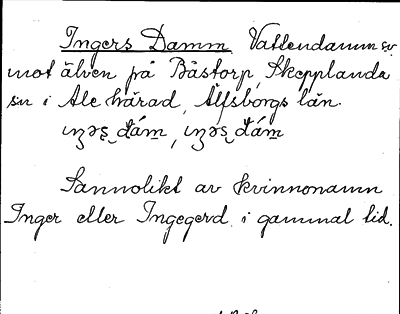 Ingers Damm Vattendamm sv
mot älven på Båstorp, Skepplanda
sn i Ale härad, Älfsborgs län.
Sannolikt av kvinnonamn
Inger eller Ingegerd i gammal tid.